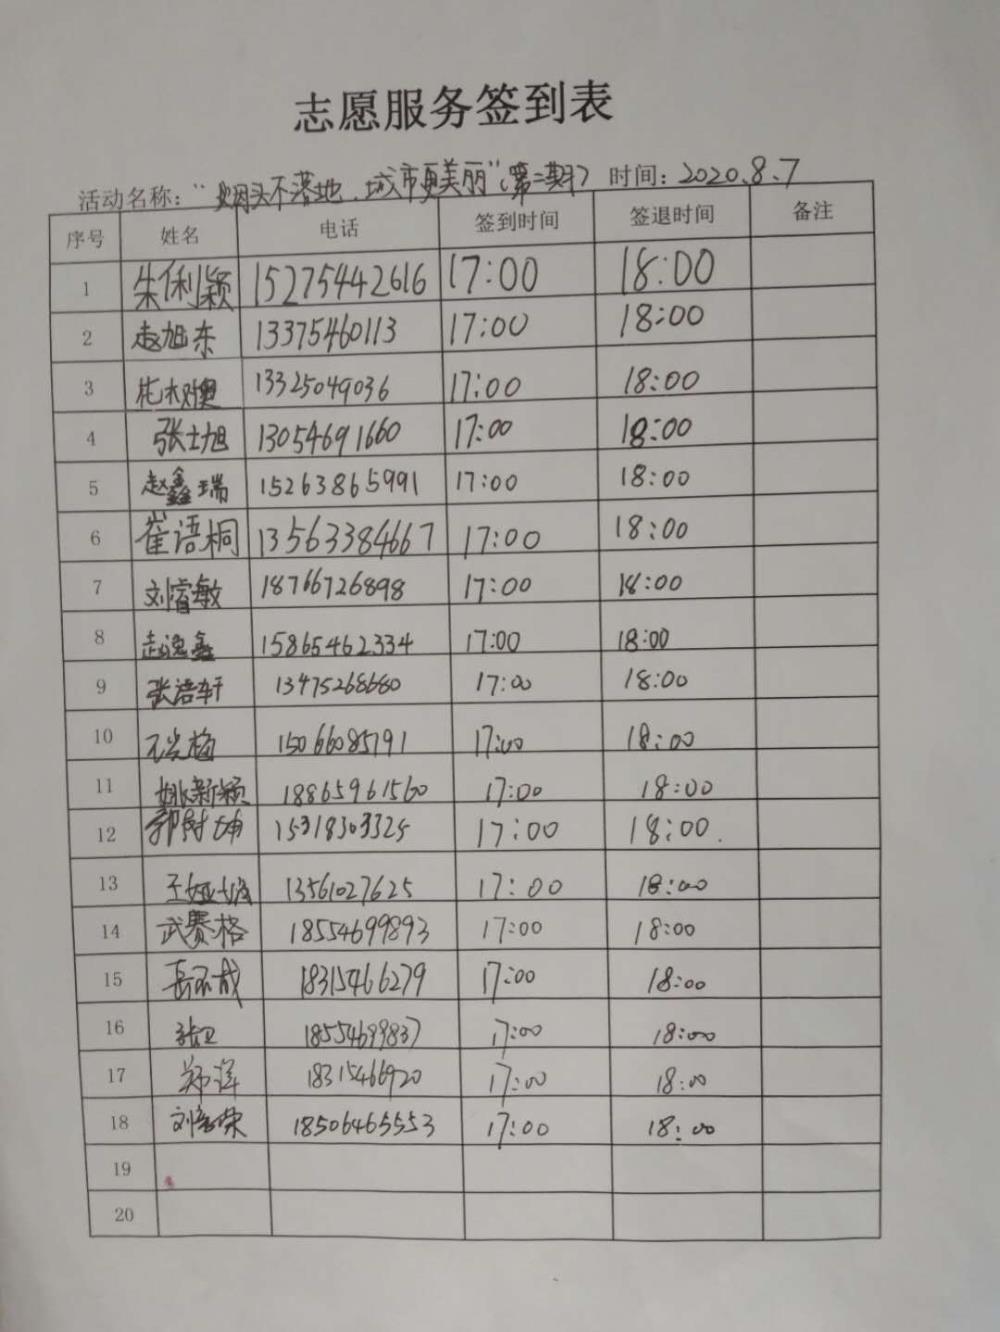 志愿服务签到表
活动名称：“烟头不落地，城市更美丽”（第二期） 时间：2020.8.7
序号 姓名 电话 签到时间 签退时间 备注
1 朱俐颖 15275442616 17:00 18:00
2 赵旭东 13375460113 17:00 18:00
3 13325049036 17:00 18:00
4 张士旭 13054691660 17:00 18:00
5 赵鑫瑞 15263865991 17:00 18:00
6 崔语桐 13563384667 17:00 18:00
7 刘睿敏 18766726898 17:00 18:00
8 赵逸鑫 15865462334 17:00 18:00
9 张浩轩 13475268680 17:00 18:00
10 15066085791 17:00 18:00
11 姚新颖 18865961560 17:00 18:00
12 15318303325 17:00 18:00
13 13561027625 17:00 18:00
14 武赛格 18554699893 17:00 18:00
15 18315466279 17:00 18:00
16 张卫 18554699837 17:00 18:00
17 郑洋 18315466920 17:00 18:00
18 18506465553 17:00 18:00
19
20